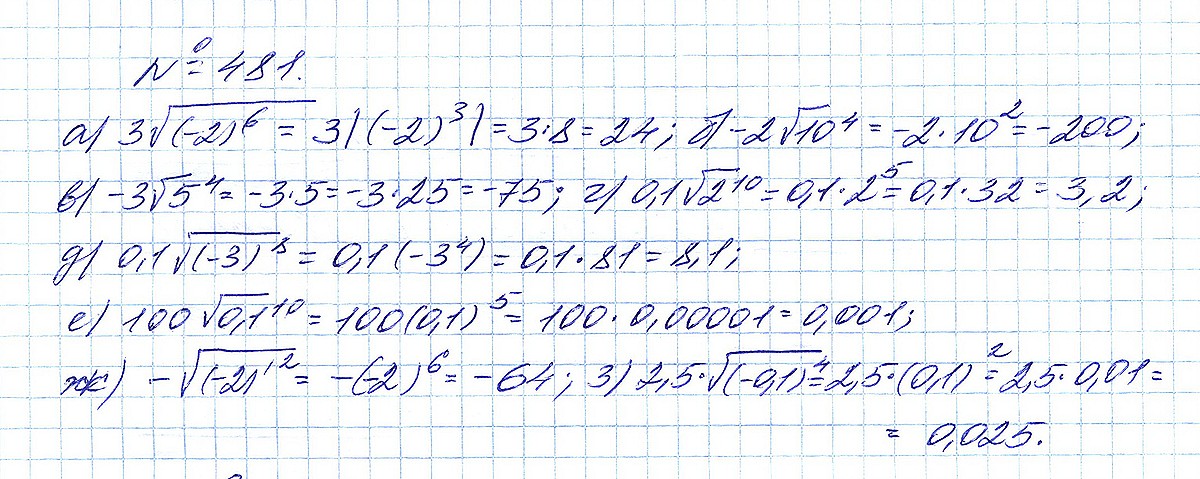 № 481.
а) 3√(-2)⁶ = 3|(-2)³| = 3·8 = 24; б) -2√10⁴ = -2·10² = -200;
в) -3√5⁴ = -3·5 = -3·25 = -75; г) 0,1√2¹⁰ = 0,1·2⁵ = 0,1·32 = 3,2;
д) 0,1√(-3)⁸ = 0,1(-3⁴) = 0,1·81 = 8,1;
е) 100√0,1¹⁰ = 100(0,1)⁵ = 100·0,00001 = 0,001;
ж) -√(-2)¹² = -(-2)⁶ = -64; з) 2,5·√(-0,1)⁴ = 2,5·(0,1)² = 2,5·0,01 =
= 0,025.